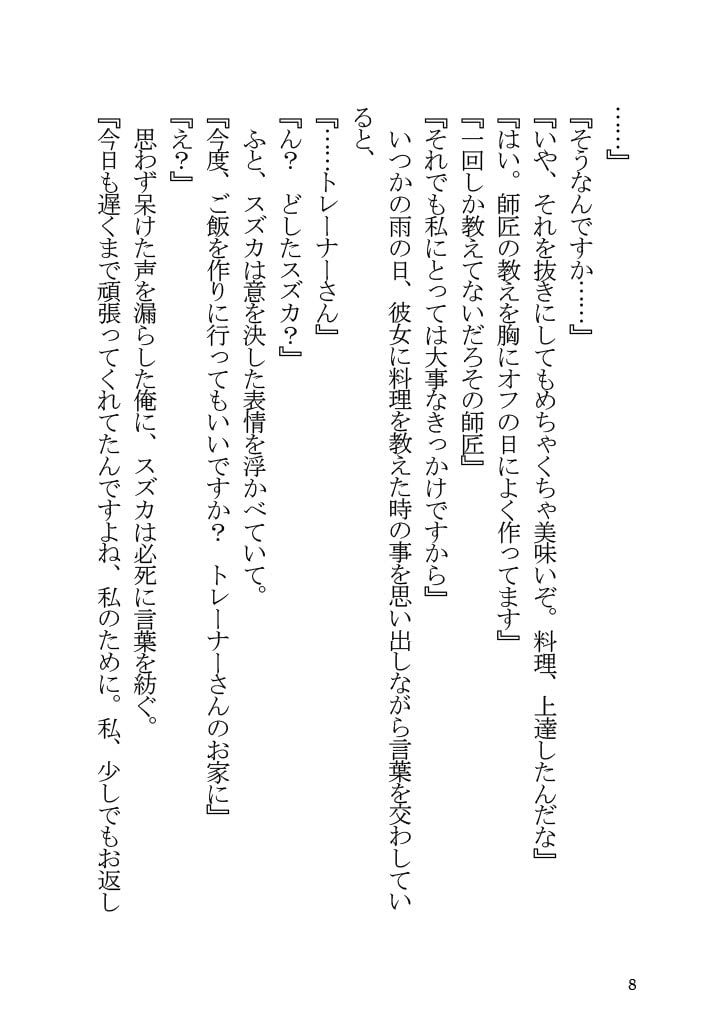 ……』
『そうなんですか……』
『いや、それを抜きにしてもめちゃくちゃ美味いぞ。料理、上達したんだな』
『はい。師匠の教えを胸にオフの日によく作ってます』
『一回しか教えてないだろその師匠』
『それでも私にとっては大事なきっかけですから』
　いつかの雨の日、彼女に料理を教えた時の事を思い出しながら言葉を交わしてい
ると、
『……トレーナーさん』
『ん？　どしたスズカ？』
　ふと、スズカは意を決した表情を浮かべていて。
『今度、ご飯を作りに行ってもいいですか？　トレーナーさんのお家に』
『え？』
　思わず呆けた声を漏らした俺に、スズカは必死に言葉を紡ぐ。
『今日も遅くまで頑張ってくれてたんですよね、私のために。私、少しでもお返し
8